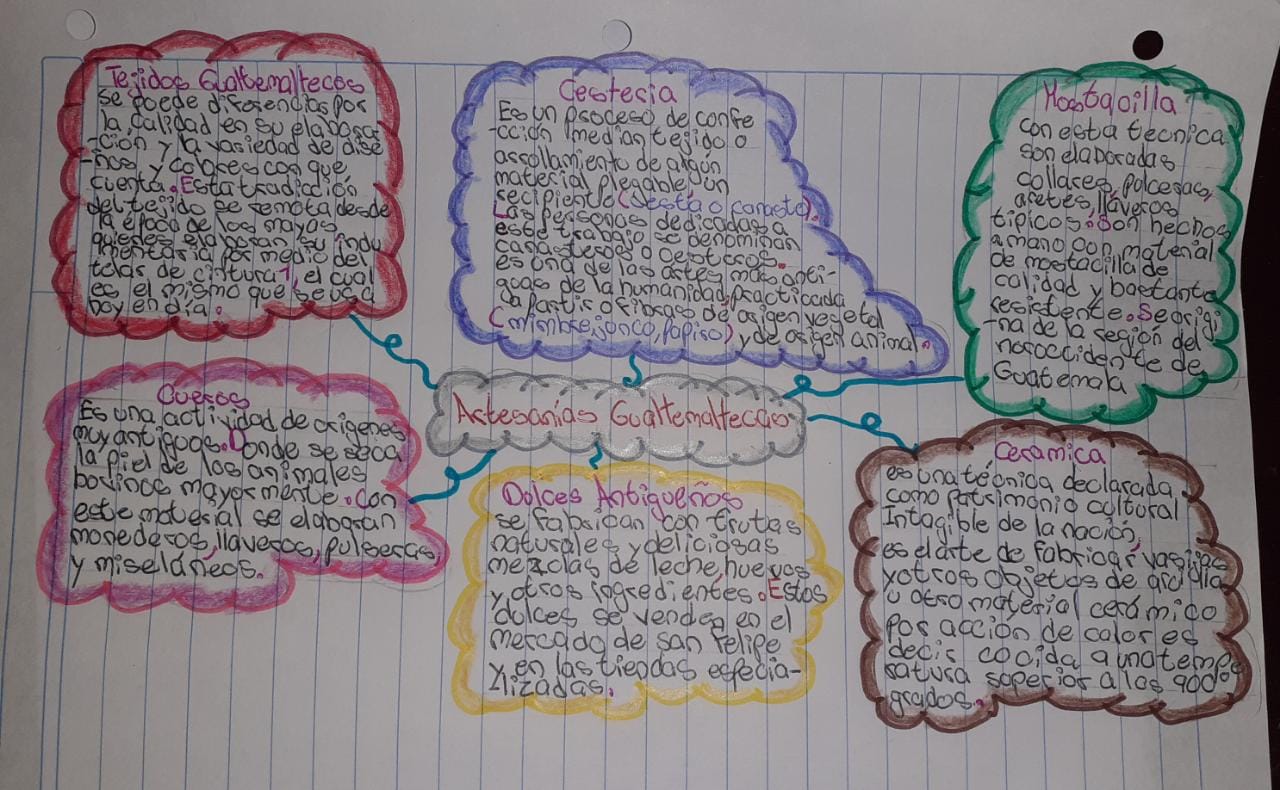 Tejidos Gualtemaltecos
se puede diferencias por
la calidad en su elabora
-ción y la variedad de dise
-ños y colores con que
cuenta. Esta tradicción
del tejido se remota desde
la época de los mayas
quienes elaboran su indu
mentaria por medio del
telar de cintura, el cual
es el mismo que se usa
hoy en día.
Cesteria
Es un proceso de confe
-cción median tejido o
arrollamiento de algún
material plegable, un
recipiento (sesta o canasto).
Las personas dedicadas a
este trabajo se denominan
canasteros o cesteros.
es una de las artes más anti-
guas de la humanidad, practicada
a partir o fibras de origen vegetal
(mimbre, jonco, papiro) y de origen animal.
Mostaquilla
con esta tecnica
son elaboradas
collares, pulceras,
aretes, llaveros
tipicos. Son hechos
a mano con material
de mostacilla de
calidad y bastante
resistente. Se origi
-na de la región del
noroccidente de
Guatemala
Artesanías Gualtemaltecas
Cueros
Es una actividad de origenes
muy antiguos. Donde se seca
la piel de los animales
bovinos mayormente. Con
este material se elaboran
monederos, llaveros, pulseras,
y miseláneos.
Dolces Antigueños
se fabrican con frutas
naturales y deliciosas
mezclas de leche, huevos
y otros ingredientes. Estos
dolces se venden en el
mercado de san Felipe
y en las tiendas especia-
lizadas.
Ceramica
es una técnica declarada
como patrimonio cultural
Intagible de la nación,
es el arte de fabricar vasijas
y otros objetos de arcilla
u otro material cerámico
por acción de calor es
decir cocida a una tempe
ratura soperior a las 900
grados.